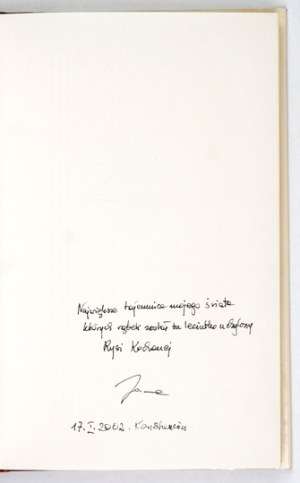 Największe tajemnice mojego świata
których rąbek został tu leciutko uchylony
Rysi Kochanej
17.I.2002. Konstancin